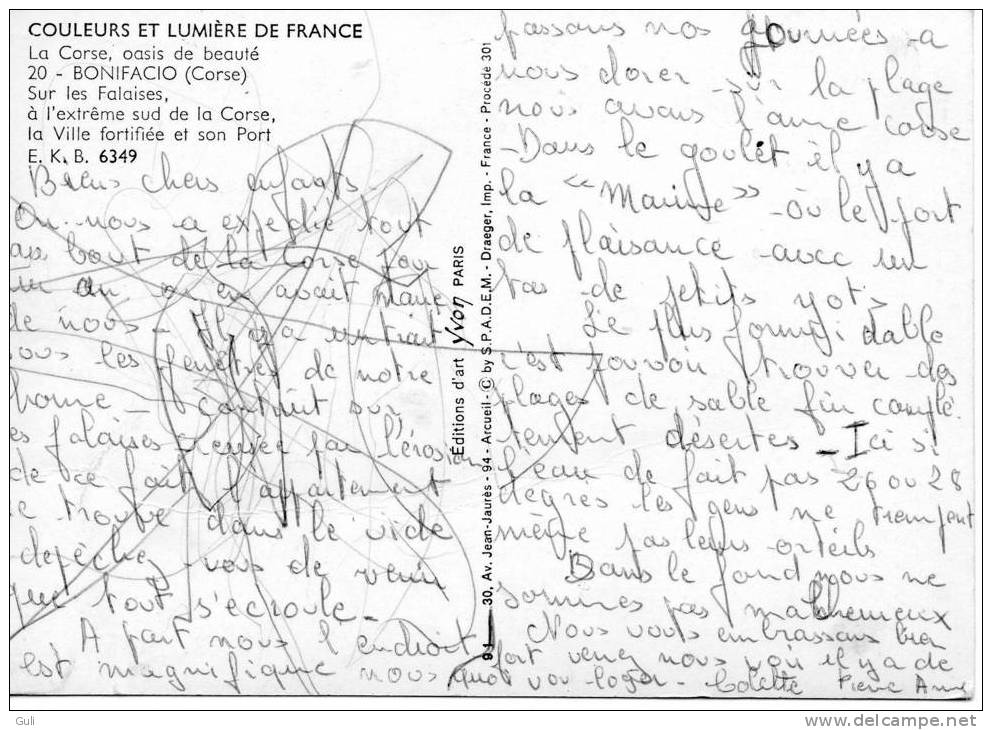 COULEURS ET LUMIÈRE DE FRANCE
La Corse, oasis de beauté
20 - BONIFACIO (Corse)
Sur les Falaises,
à l'extrême sud de la Corse,
la Ville fortifiée et son Port
E. K. B. 6349
Biens chers enfants
On nous a expédié tout
au bout de la Corse pour
un an on en avait marre
de nous - Il y a un trait
sous les fenêtres de notre
home - construit sur
es falaises creusée par l'érosion
de ce fait l'appartement
se trouve dans le vide
depêchez vous de venir
que tout s'écroule -
A part nous l'endroit
est magnifique nous
Éditions d'art Yvon PARIS
30, Av. Jean-Jaurès - 94 - Arcueil - © by S.P.A.D.E.M. - Draeger, Imp. - France - Procédé 301
passons nos journées a
nous dorer sur la plage
nous avons l'ame corse
- Dans le goulet il y a
la "Marine" - où le port
de plaisance avec un
tas de petits yots
Le plus formidable
c'est pouvoir trouver des
plages de sable fin complé
tement désertes - Ici si
l'eau de fait pas 26 ou 28
degrès les gens ne trempent
même pas leurs orteils
Dans le fond nous ne
sommes pas malheureux
Nous vous embrassons bien
fort venez nous voir il y a de
quoi vou loger - Colette Pierre Anne
Guli
www.delcampe.net